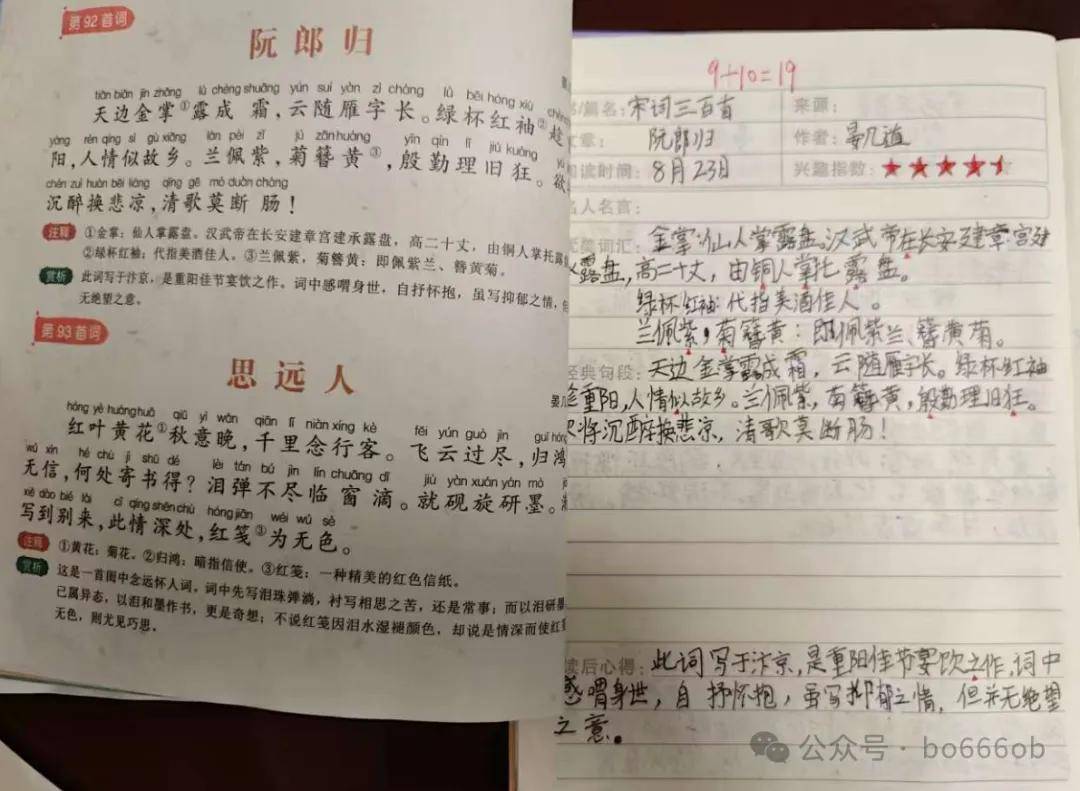 第92首词
阮郎归
tiān biān jīn zhǎng lù chéng shuāng yún suí yàn zì cháng lǜ bēi hóng xiù chèn
天边金掌①露成霜,云随雁字长。绿杯红袖②趁
yáng rén qíng sì gù xiāng lán pèi zǐ jú zān huáng yīn qín lǐ jiù kuáng yù
阳,人情似故乡。兰佩紫,菊簪黄③,殷勤理旧狂。欲
chén zuì huàn bēi liáng qīng gē mò duàn cháng
沉醉换悲凉,清歌莫断肠!
注释 ①金掌:仙人掌露盘。汉武帝在长安建章宫建承露盘,高二十丈,由铜人掌托露
②绿杯红袖:代指美酒佳人。③兰佩紫,菊簪黄:即佩紫兰、簪黄菊。
赏析 此词写于汴京,是重阳佳节宴饮之作。词中感喟身世,自抒怀抱,虽写抑郁之情,但
无绝望之意。
第93首词
思远人
晏几
hóng yè huáng huā qiū yì wǎn qiān lǐ niàn xíng kè fēi yún guò jìn guī hóng
红叶黄花①秋意晚,千里念行客。飞云过尽,归鸿
wú xìn hé chù jì shū dé lèi tán bú jìn lín chuāng dī jiù yàn xuán yán mò
无信,何处寄书得?泪弹不尽临窗滴。就砚旋研墨。
xiě dào bié lái cǐ qíng shēn chù hóng jiān wéi wú sè
写到别来,此情深处,红笺③为无色。
注释 ①黄花:菊花。②归鸿:暗指信使。③红笺:一种精美的红色信纸。
赏析 这是一首闺中念远怀人词。词中先写泪珠弹滴,衬写相思之苦,还是常事;而以泪研墨
已属异态,以泪和墨作书,更是奇想;不说红笺因泪水湿褪颜色,却说是情深而使红笺
无色,则尤见巧思。
9+10=19
书/篇名:宋词三百首 来源:
文章: 阮郎归 作者:晏几道
阅读时间: 8月23日 兴趣指数:★★★★
名人名言:
优美词汇: 金掌:仙人掌露盘。汉武帝在长安建章宫建
露盘,高二十丈,由铜人掌托露盘。
绿杯红袖:代指美酒佳人。
兰佩紫,菊簪黄:即佩紫兰、簪黄菊。
经典句段: 天边金掌露成霜,云随雁字长。绿杯红袖
趁重阳,人情似故乡。兰佩紫,菊簪黄,殷勤理旧狂。
欲将沉醉换悲凉,清歌莫断肠!
读后心得: 此词写于汴京,是重阳佳节宴饮之作,词中
感喟身世,自抒怀抱,虽写抑郁之情,但并无绝望
之意。
公众号·bo666ob